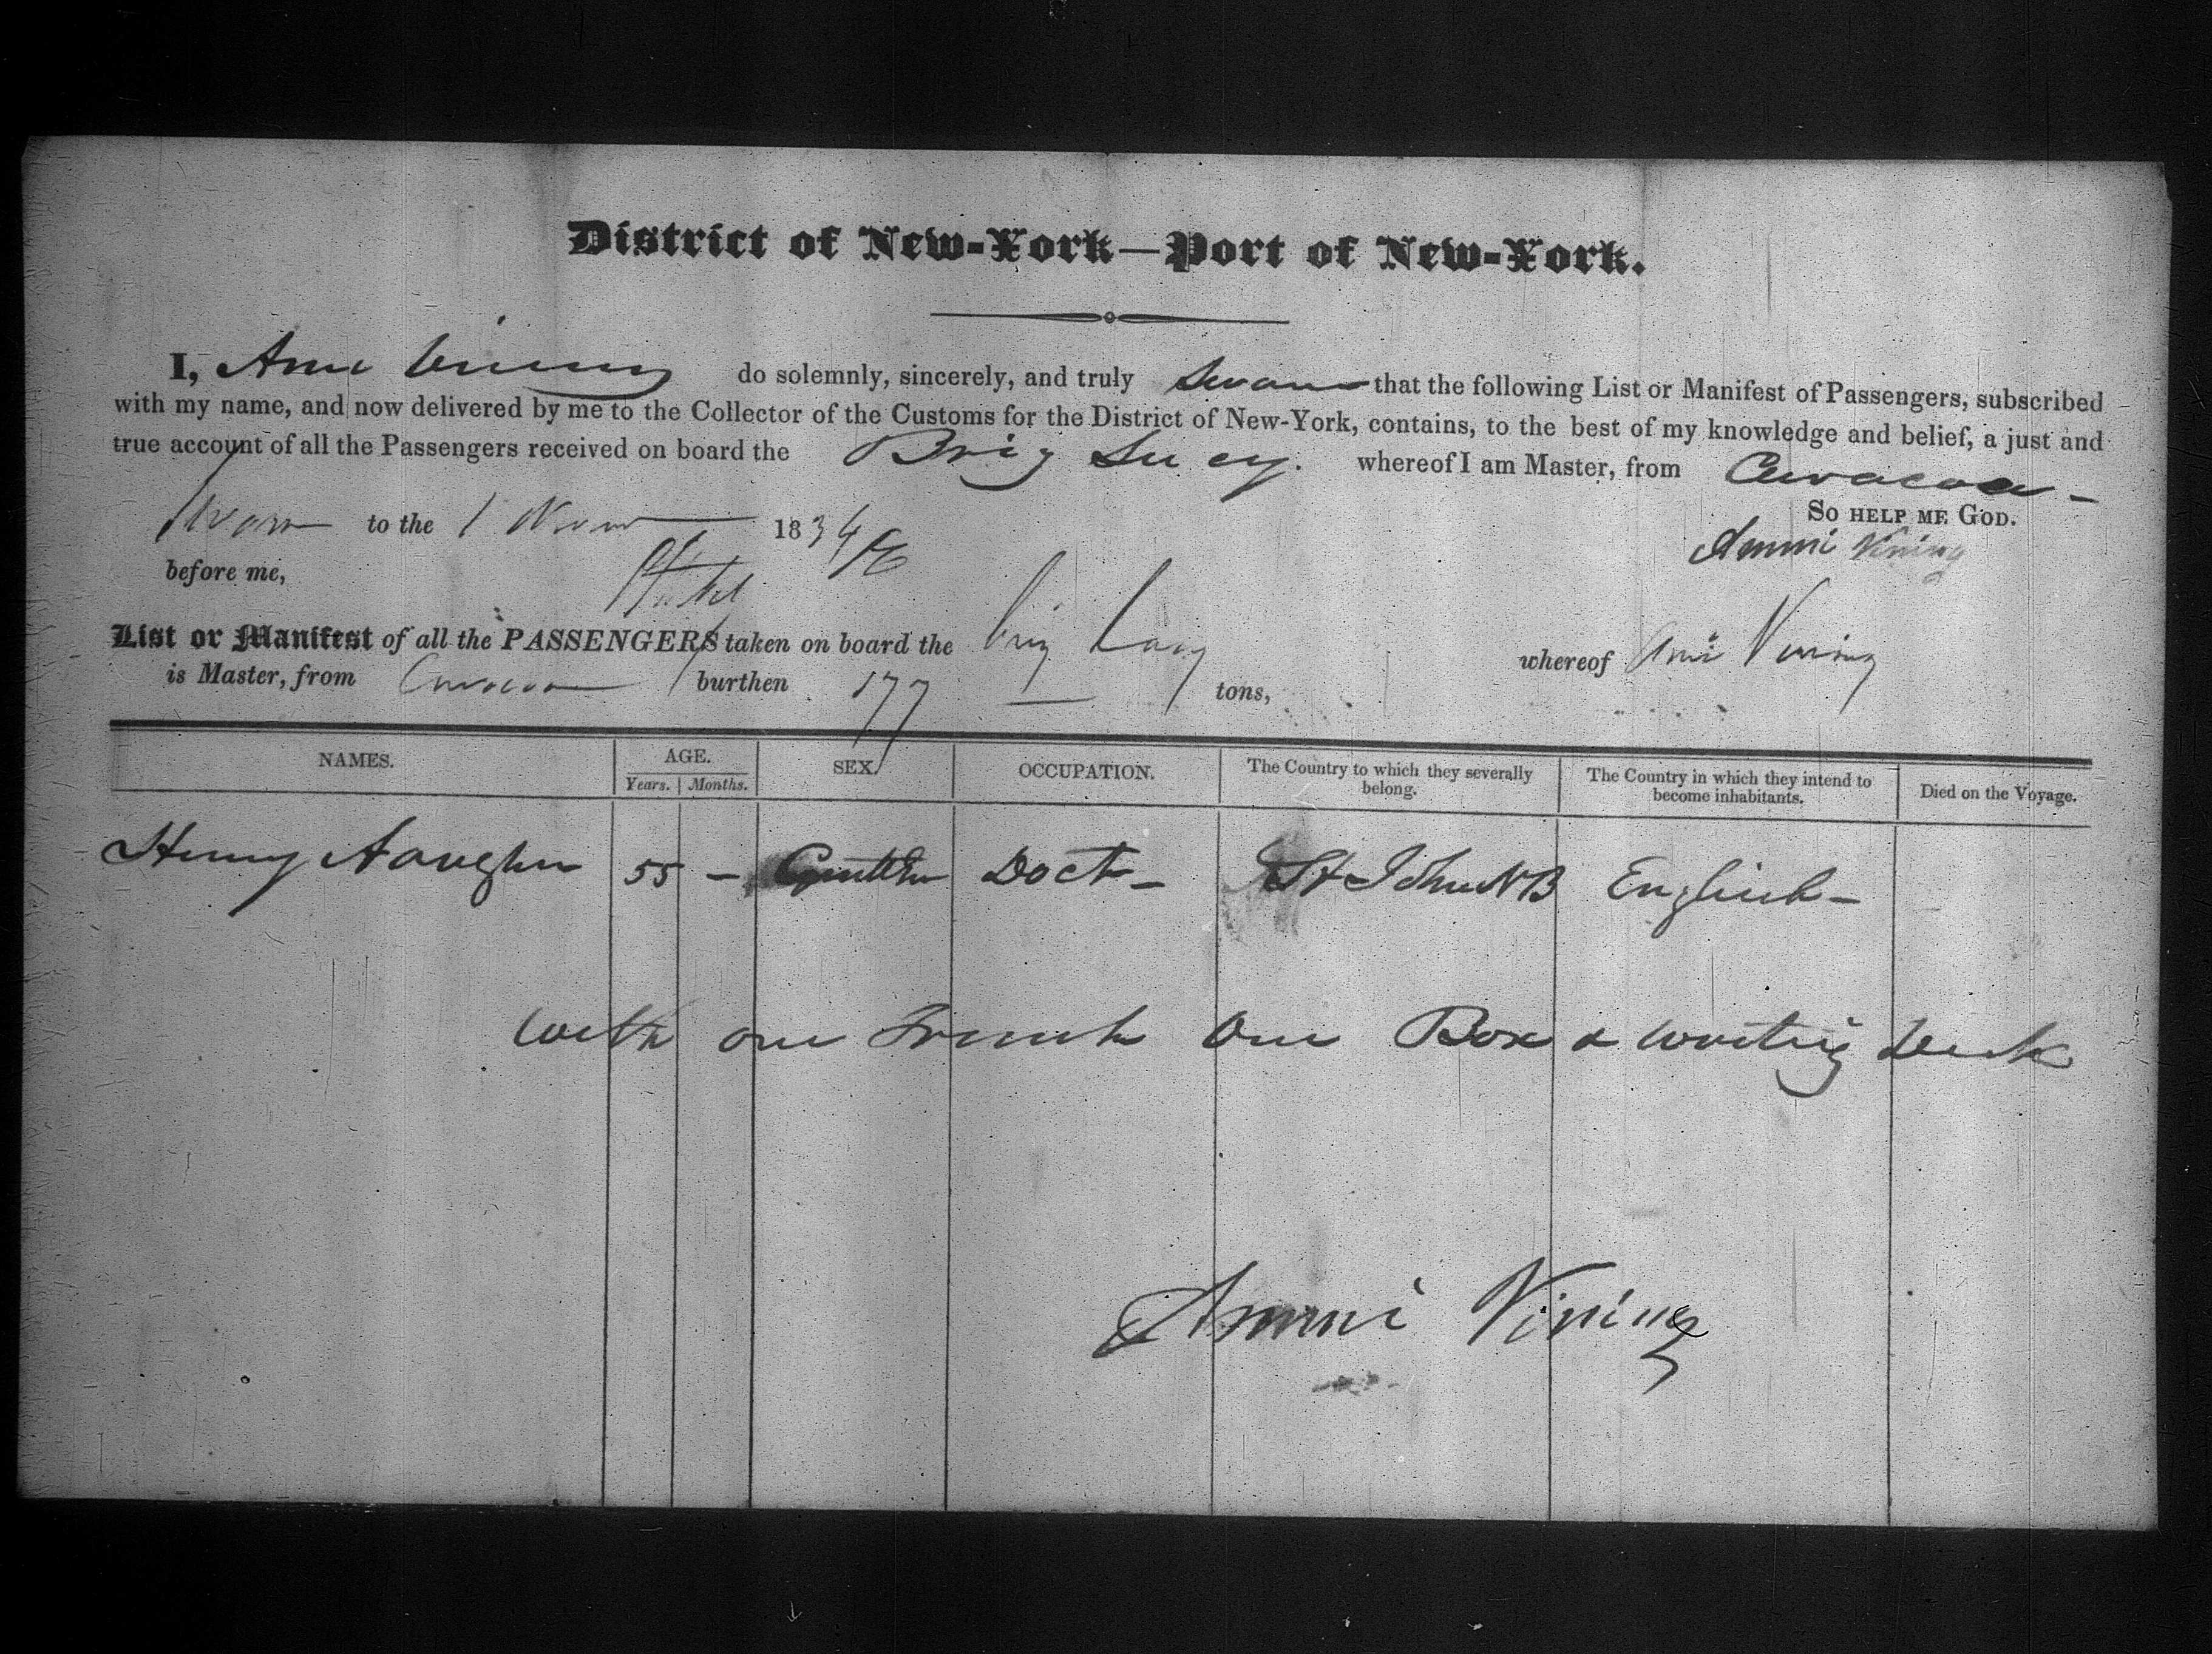 District of New-York—Port of New-York.
I, Ami Vining do solemnly, sincerely, and truly Swear that the following List or Manifest of Passengers, subscribed
with my name, and now delivered by me to the Collector of the Customs for the District of New-York, contains, to the best of my knowledge and belief, a just and
true account of all the Passengers received on board the Brig Lucy. whereof I am Master, from Curacoa -
Sworn to the 1 Nov 1834 So HELP ME GOD.
before me, Ammi Vining
List or Manifest of all the PASSENGERS taken on board the brig Lucy whereof Ami Vining
is Master, from Curacoa burthen 177 tons,
NAMES. AGE. SEX. OCCUPATION. The Country to which they severally belong. The Country in which they intend to become inhabitants. Died on the Voyage.
Years. Months.
Henry 55 - Doct - St John NB English -
With one Trunk One Box & writing Desk
Ammi Vining